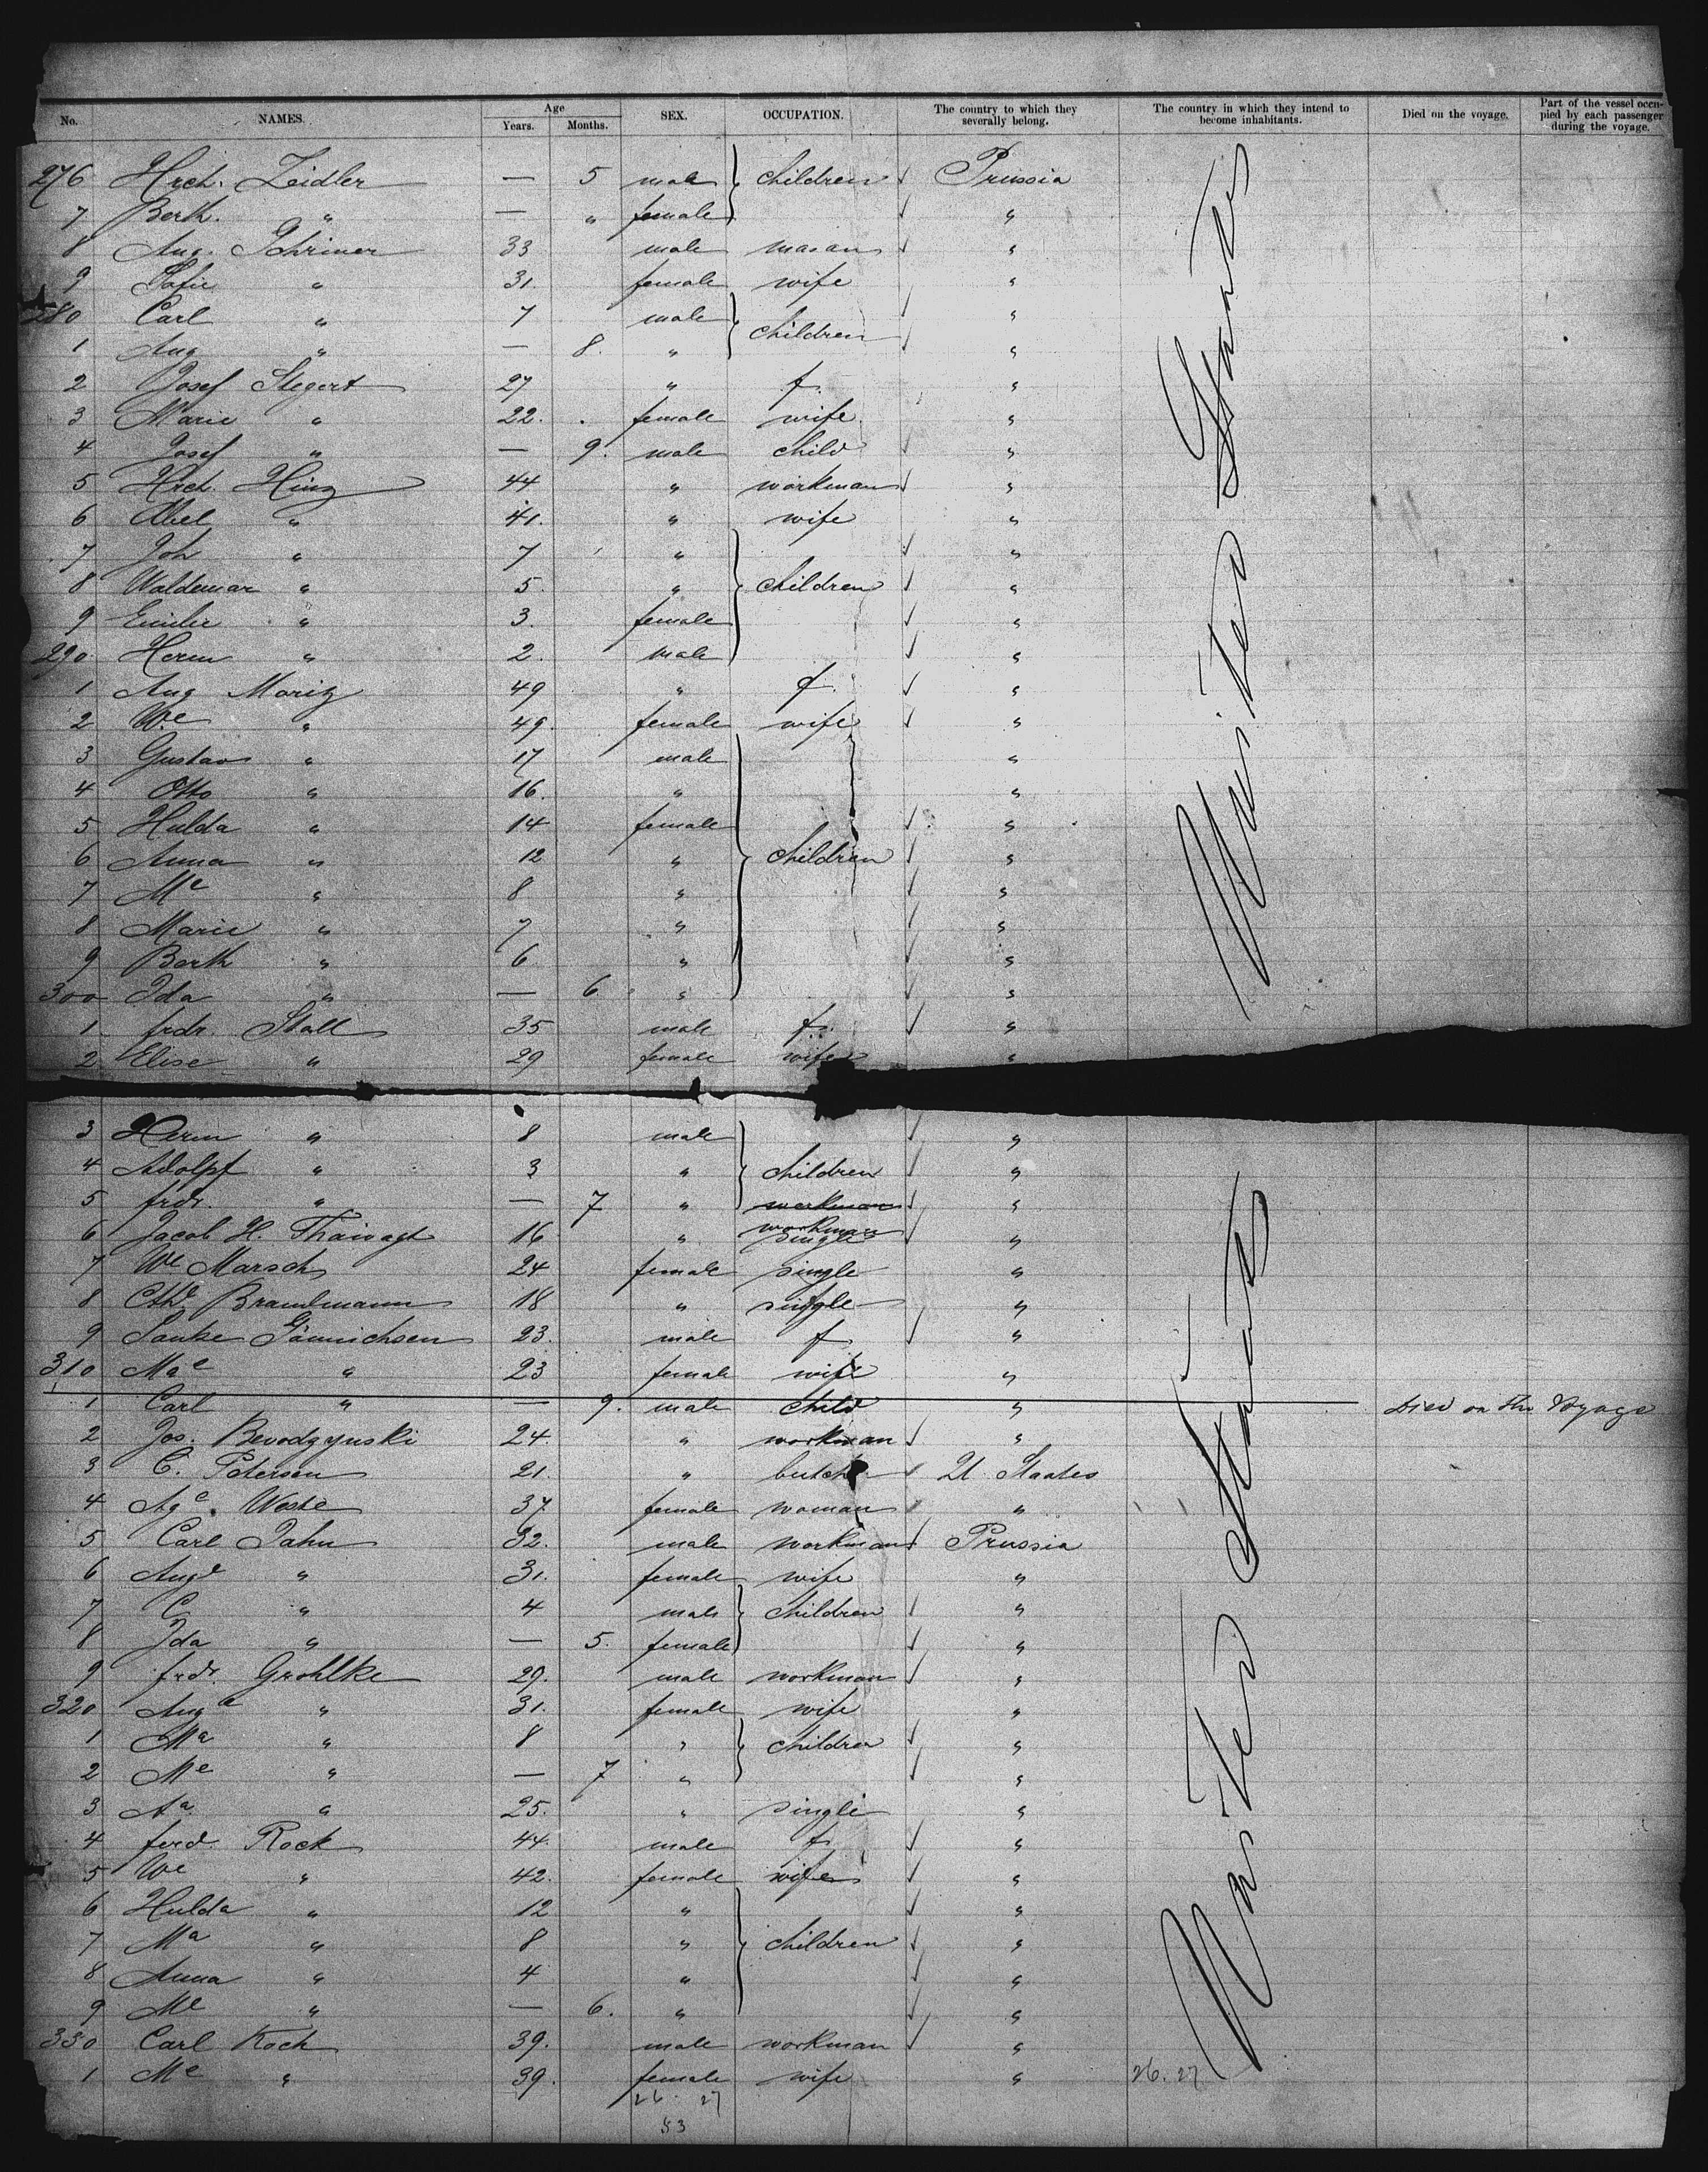 No. NAMES. Age Years. Months. SEX. OCCUPATION. The country to which they severally belong. The country in which they intend to become inhabitants. Died on the voyage. Part of the vessel occupied by each passenger during the voyage.
276 Hrch. Zeidler — 5 male children Prussia
7 Berth. " — " female "
8 Aug. Schriner 33 male mason "
9 Sofie " 31. female wife "
280 Carl " 7 male children "
1 Aug " — 8. " "
2 Josef Stegert 27 " f. "
3 Marie " 22. female wife "
4 Josef " — 9. male child "
5 Hrch. Hinz 44 " workman "
6 Abel " 41. " wife "
7 Joh " 7 " "
8 Waldemar " 5. " children "
9 Emilie " 3. female "
290 Herm " 2. male "
1 Aug Moritz 49 " f. "
2 We " 49. female wife "
3 Gustav " 17 male "
4 Otto " 16. " "
5 Hulda " 14 female "
6 Anna " 12 " children "
7 Me " 8 " "
8 Marie " 7 " "
9 Berth " 6 " "
300 Ida " — 6 " "
1 frdr. Stall 35 male f. "
2 Elise " 29 female wife "
United States
3 Herm " 8 male "
4 Adolpf " 3 " children "
5 frdr. " — 7 " workman "
6 Jacob H. 16 " workman single "
7 We Marsch 24 female single "
8 Cthe Brandmann 18 " single "
9 23. male f. "
310 Mae " 23 female wife "
1 Carl " — 9. male child " died on the Voyage
2 Jos. 24. " workman "
3 C. Petersen 21. " butcher U. Staates
4 Age. 37. female woman "
5 Carl Jahn 32. male workman Prussia
6 Auge " 31. female wife "
7 C " 4 male children "
8 Ida " — 5. female "
9 frdr. Grohlke 29. male workman "
320 Auga " 31. female wife "
1 Ma " 8 " children "
2 Me " — 7 " "
3 Aa " 25. " single "
4 ferd. Rock 44. male f. "
5 We " 42. female wife "
6 Hulda " 12 " "
7 Ma " 8 " children "
8 Anna " 4 " "
9 Me " — 6. " "
330 Carl Koch 39. male workman "
1 Me " 39. female wife " 26. 27
United States
26 27
53